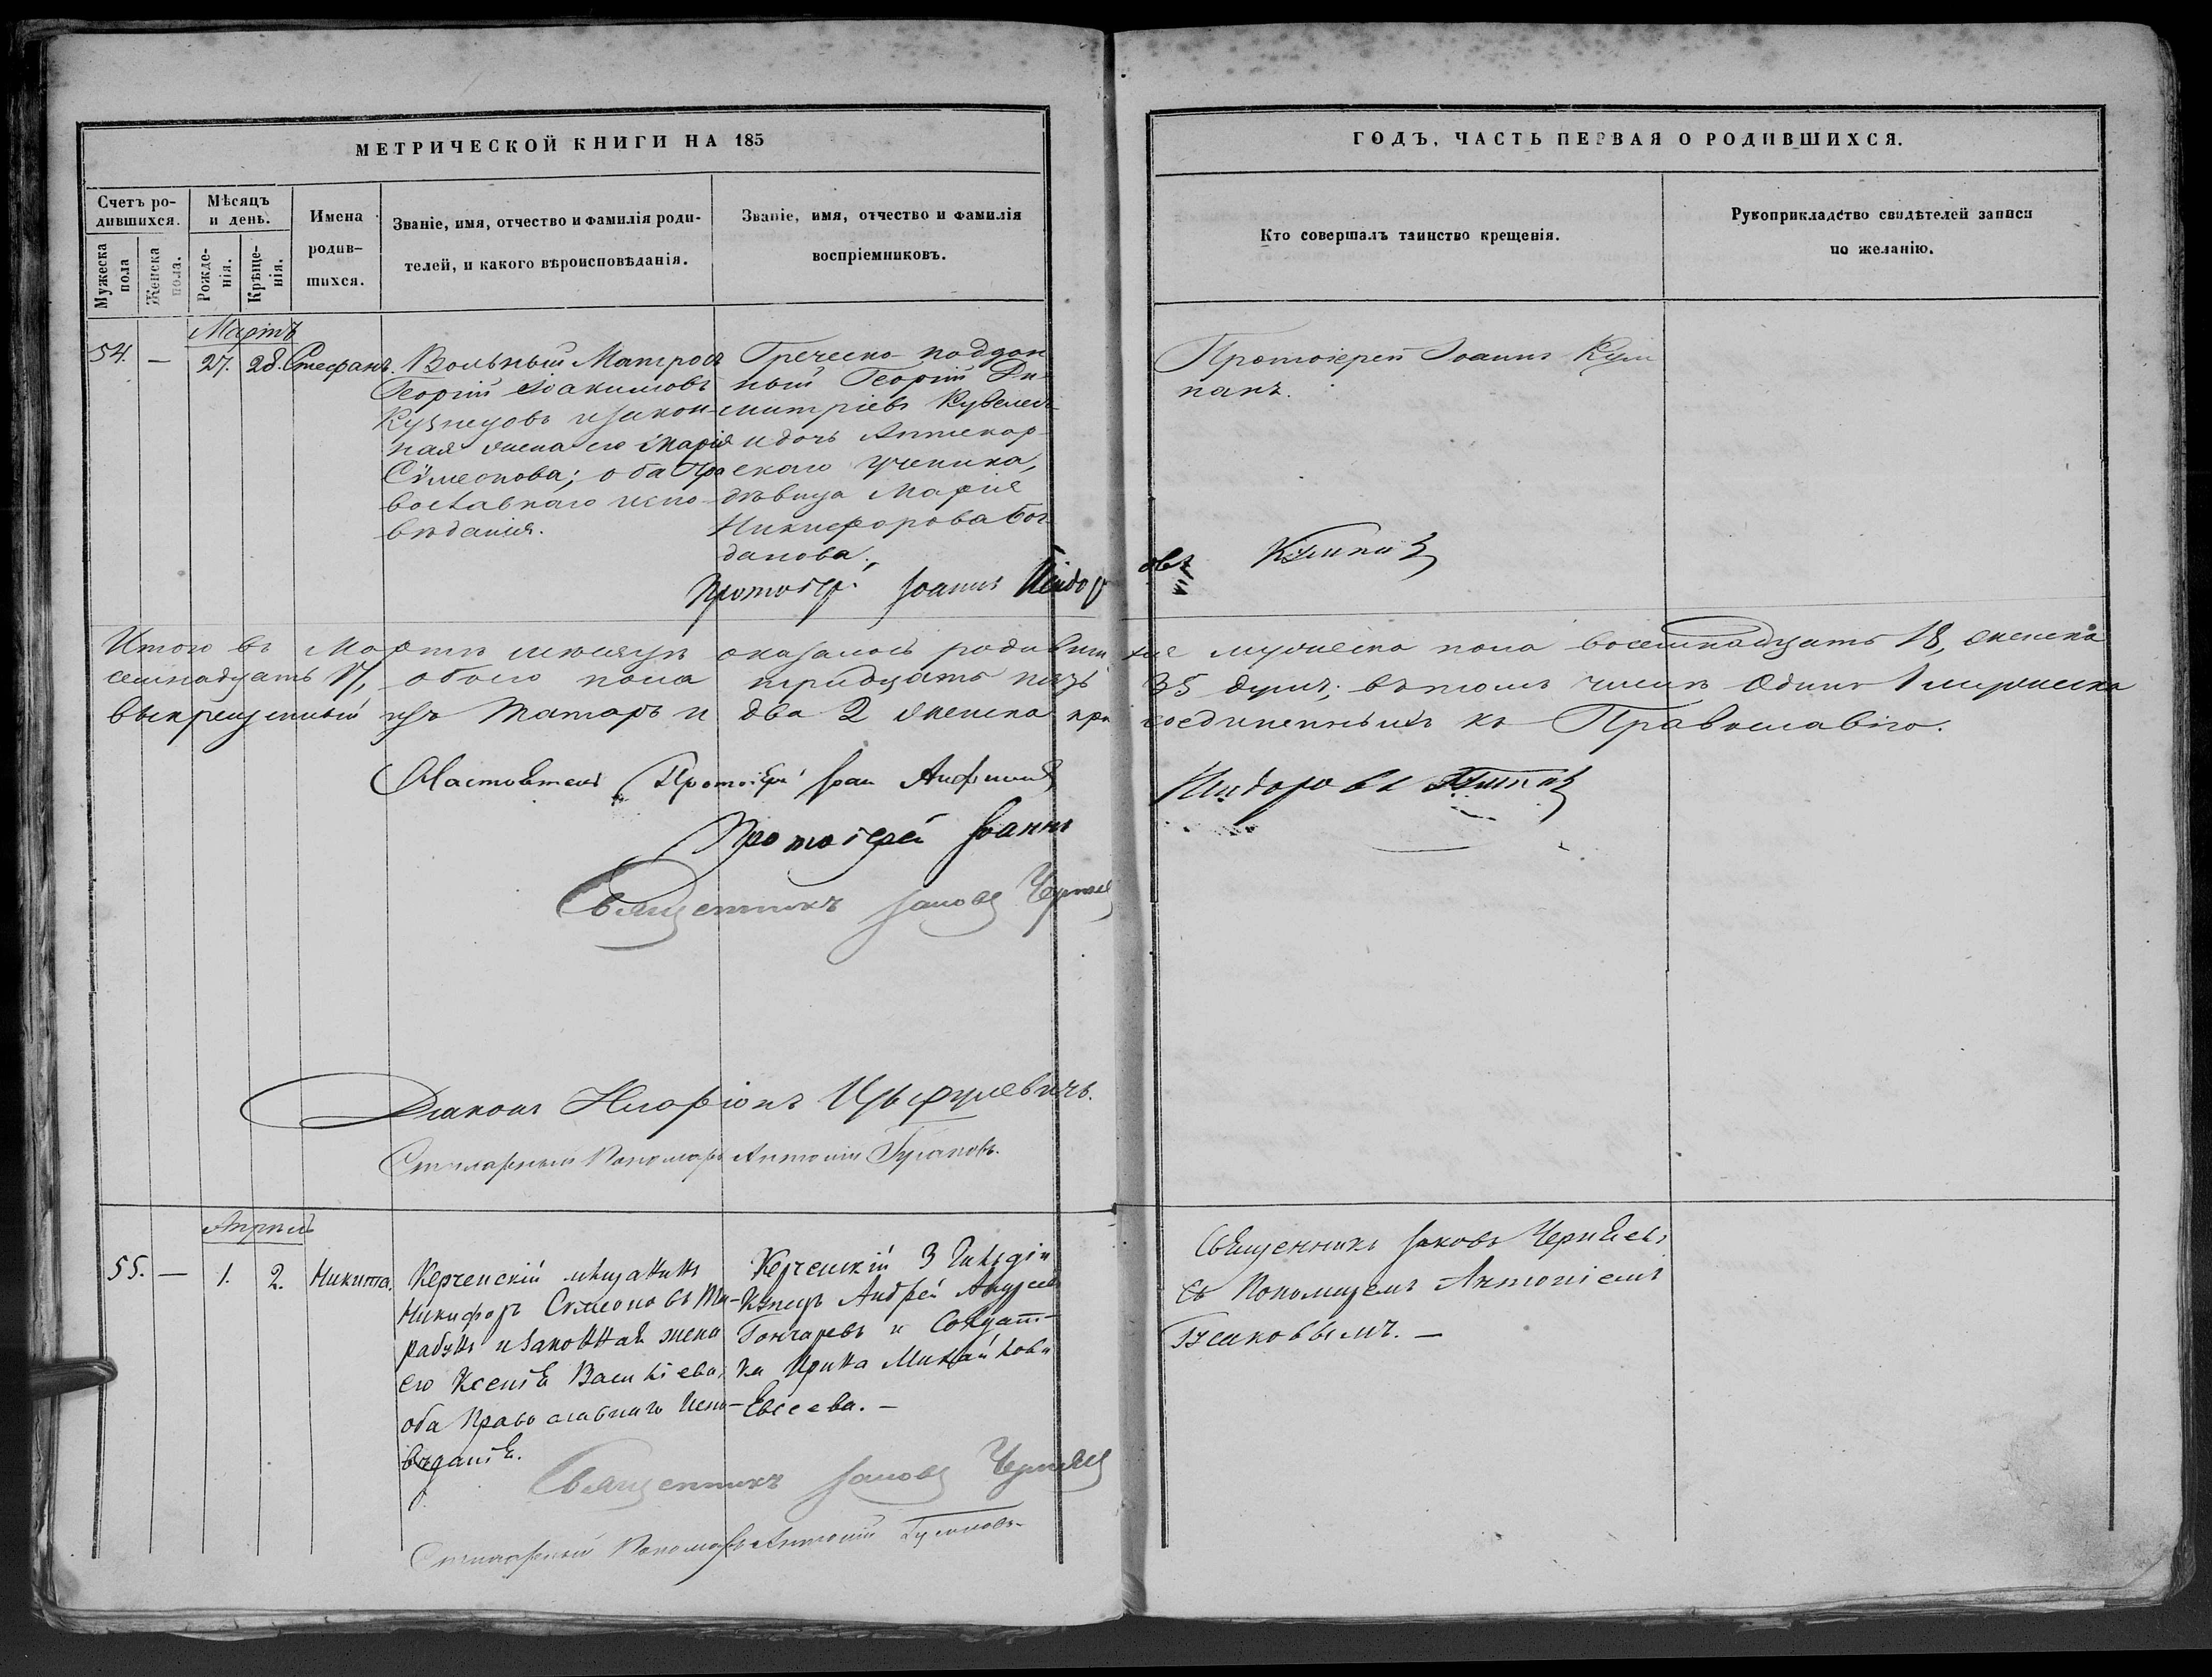 МЕТРИЧЕСКОЙ КНИГИ НА 185
ГОДЪ, ЧАСТЬ ПЕРВАЯ О РОДИВШИХСЯ.
Счетъ ро-
дившихся.
Мужеска
пола
Женска
пола.
Мѣсяцъ
и день.
Рожде-
нія.
Крѣще-
нія.
Имена
родив-
шихся.
Званіе, имя, отчество и фамилія роди-
телей, и какого вѣроисповѣданія.
Званіе, имя, отчество и фамилія
воспріемниковъ.
Кто совершалъ таинство крещенія.
Рукоприкладство свидѣтелей записи
по желанію.
Мартъ
54. — 27. 28. Стефанъ.
Вольный Матросъ
Георгій Іоакимовъ
Кузнецовъ и закон-
ная жена его Марія
Симеонова; оба Пра
вославнаго испо-
вѣданія.
Греческо-поддан
ный Георгій Ди-
митріевъ
и дочь Аптекар-
скаго ученика,
дѣвица Марія
Никифорова Бог-
данова.
Протоіерей Іоаннъ Кум
панъ.
Протоіер. Іоаннъ
Итого въ Мартѣ мѣсяцѣ оказалось родивших ся мужеска пола восемнадцать 18, женска
семнадцать 17, обоего пола тридцать пять 35 душъ; въ томъ числѣ Одинъ 1 мужеска
выкрещенный изъ Татаръ и два 2 женска при соединенныхъ къ Православію.
Настоятель Протоіерей
Протоіерей Іоаннъ
Священникъ Іаковъ Черняев
Діаконъ Иларіонъ
Стихарный Пономарь Антоній Гусаковъ.
Апрѣль
55. — 1. 2. Никита.
Керченскій мѣщанинъ
Никифоръ Симеоновъ
и законная жена
его Ксенія Васильева,
оба Православнаго Испо-
вѣданія.
Керченскій 3 Гильдіи
Купецъ Андрей Андреев
Гончаревъ и Солдат-
ка Ирина Михайлова
Евсеева. —
Священникъ Іаковъ Черняевъ
съ Пономаремъ Антоніемъ
Гусаковымъ. —
Священникъ Іаковъ Черняев
Стихарный Пономарь Антоній Гусаковъ